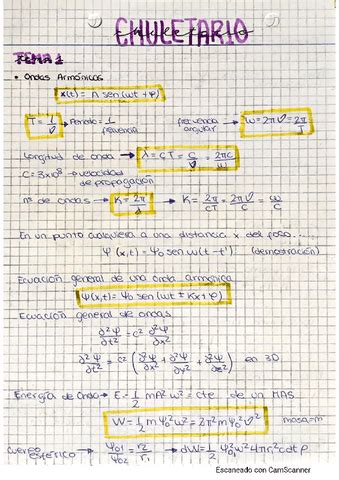 CHULETARIO
TEMA 1
• Ondas Armónicas
x(t) = A sen(wt + φ)
T = 1/ν → Periodo = 1/frecuencia frecuencia angular → W = 2πν = 2π/T
Longitud de onda → λ = cT = c/ν = 2πc/w
C = 3×10⁸ → velocidad de propagación
nº de ondas → K = 2π/λ → K = 2π/cT = 2πν/c = w/c
En un punto cualquiera a una distancia x del foso....
Ψ(x,t) = Ψ₀ sen w(t - t') (demostración)
Ecuación general de una onda armónica
Ψ(x,t) = Ψ₀ sen(wt ± Kx + φ)
Ecuación general de ondas
∂²Ψ/∂t² = c² ∂²Ψ/∂x²
∂²Ψ/∂t² = c² (∂²Ψ/∂x² + ∂²Ψ/∂y² + ∂²Ψ/∂z²) en 3D
Energía de Onda → E = 1/2 mA²w² = cte de un MAS
W = 1/2 mΨ₀²w² = 2π²mΨ₀²ν² masa=m
Cuerpo esférico → Ψ₀₁/Ψ₀₂ = r₂/r₁ → dW = 1/2 Ψ₀²w²4πr²cdtρ
Escaneado con CamScanner